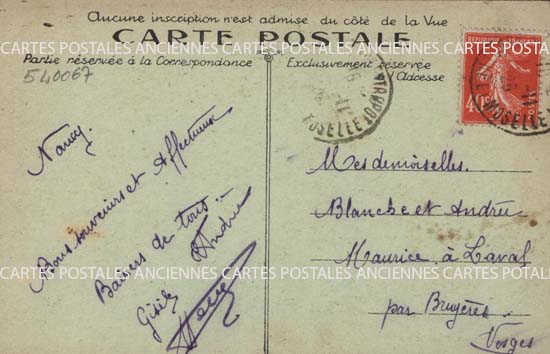 Aucune inscription n'est admise du côté de la Vue
CARTE POSTALE
Partie réservée à la Correspondance
Exclusivement réservée
à l'Adresse
540067
Nancy.
Bons souvenirs et Affectueux
Baisers de tous.
Gisèle Andrée
CARTES POSTALES ANCIENNES CARTES POSTALES ANCIENNES CARTES POSTALES ANCIENNES
MOSELLE
MOSELLE
40c
Mesdemoiselles.
Blanche et Andrée
Maurice à Laval
par Bruyères.
Vosges
CARTES POSTALES ANCIENNES CARTES POSTALES ANCIENNES CARTES POSTALES ANCIENNES